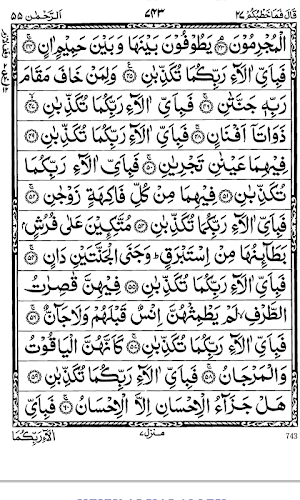 قَالَ فَمَا خَطْبُكُمْ ٢٧
٧٤٣
اَلرَّحْمٰن ٥٥
الْمُجْرِمُوْنَ ۘ‏﴿٤٣﴾ يَطُوْفُوْنَ بَيْنَهَا وَبَيْنَ حَمِيْمٍ اٰنٍ ۚ‏﴿٤٤﴾
فَبِاَىِّ اٰلَآءِ رَبِّكُمَا تُكَذِّبٰنِ ﴿٤٥﴾ وَلِمَنْ خَافَ مَقَامَ
رَبِّهٖ جَنَّتٰنِ ۚ‏﴿٤٦﴾ فَبِاَىِّ اٰلَآءِ رَبِّكُمَا تُكَذِّبٰنِ ۙ‏﴿٤٧﴾
ذَوَاتَاۤ اَفْنَانٍ ۚ‏﴿٤٨﴾ فَبِاَىِّ اٰلَآءِ رَبِّكُمَا تُكَذِّبٰنِ ﴿٤٩﴾
فِيْهِمَا عَيْنٰنِ تَجْرِيٰنِ ۚ‏﴿٥٠﴾ فَبِاَىِّ اٰلَآءِ رَبِّكُمَا
تُكَذِّبٰنِ ﴿٥١﴾ فِيْهِمَا مِنْ كُلِّ فَاكِهَةٍ زَوْجٰنِ ۚ‏﴿٥٢﴾
فَبِاَىِّ اٰلَآءِ رَبِّكُمَا تُكَذِّبٰنِ ﴿٥٣﴾ مُتَّكِـِٕيْنَ عَلٰى فُرُشٍۭ
بَطَآئِنُهَا مِنْ اِسْتَبْرَقٍ ؕ وَجَنَا الْجَنَّتَيْنِ دَانٍ ۚ‏﴿٥٤﴾
فَبِاَىِّ اٰلَآءِ رَبِّكُمَا تُكَذِّبٰنِ ﴿٥٥﴾ فِيْهِنَّ قٰصِرٰتُ
الطَّرْفِ ۙ لَمْ يَطْمِثْهُنَّ اِنْسٌ قَبْلَهُمْ وَلَا جَآنٌّ ۚ‏﴿٥٦﴾
فَبِاَىِّ اٰلَآءِ رَبِّكُمَا تُكَذِّبٰنِ ۚ‏﴿٥٧﴾ كَاَنَّهُنَّ الْيَاقُوْتُ
وَالْمَرْجَانُ ۚ‏﴿٥٨﴾ فَبِاَىِّ اٰلَآءِ رَبِّكُمَا تُكَذِّبٰنِ ﴿٥٩﴾
هَلْ جَزَآءُ الْاِحْسَانِ اِلَّا الْاِحْسَانُ ۚ‏﴿٦٠﴾ فَبِاَىِّ
اٰلَآءِ رَبِّكُمَا
منزل ٧
743